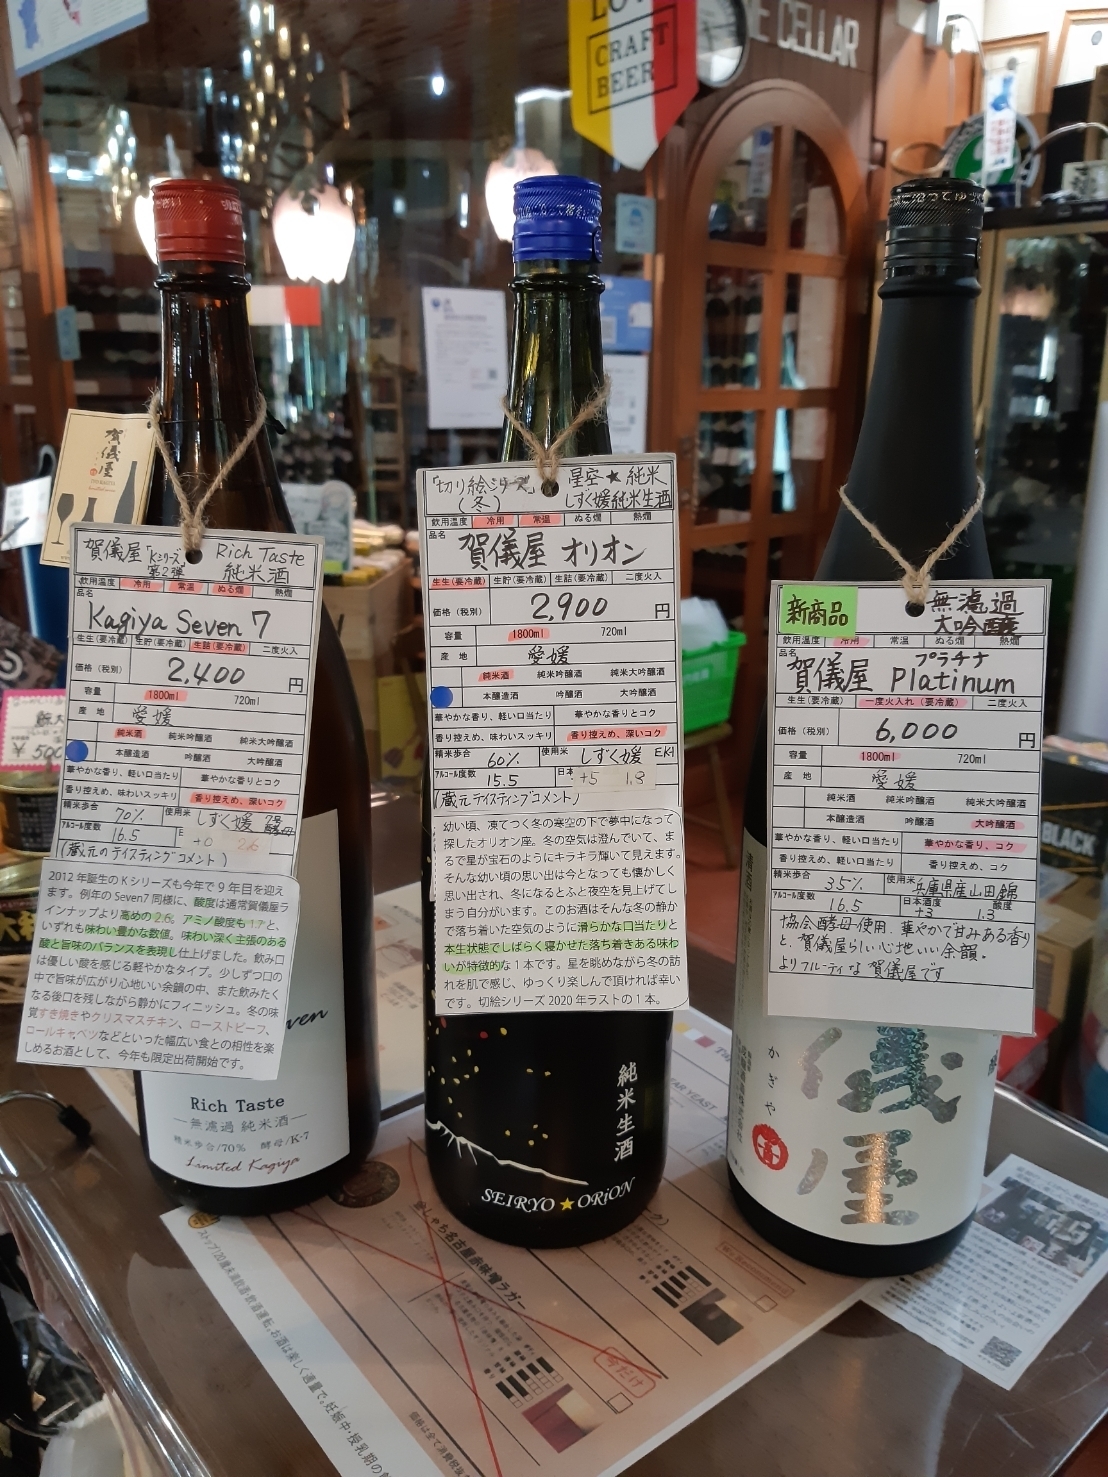 LOVE
CRAFT
BEER
CELLAR
賀儀屋
賀儀屋「Kシリーズ」第2弾
Rich Taste
純米酒
飲用温度 冷用 常温 ぬる燗 熱燗
品名
Kagiya Seven 7
生生(要冷蔵) 生貯(要冷蔵) 生詰(要冷蔵) 二度火入
価格(税別) 2,400 円
容量 1800ml 720ml
産地 愛媛
純米酒 純米吟醸酒 純米大吟醸酒
本醸造酒 吟醸酒 大吟醸酒
華やかな香り、軽い口当たり 華やかな香りとコク
香り控えめ、味わいスッキリ 香り控えめ、深いコク
精米歩合 70% 使用米 しずく媛
アルコール度数 16.5 +0 2.6
(蔵元のテイスティングコメント)
2012年誕生のKシリーズも今年で9年目を迎え
ます。例年のSeven7同様に、酸度は通常賀儀屋ラ
インナップより高めの2.6。アミノ酸度も1.7と、
いずれも味わい豊かな数値。味わい深く主張のある
酸と旨味のバランスを表現し仕上げました。飲み口
は優しい酸を感じる軽やかなタイプ。少しずつ口の
中で旨味が広がり心地いい余韻の中、また飲みたく
なる後口を残しながら静かにフィニッシュ。冬の味
覚すき焼きやクリスマスチキン、ローストビーフ、
ロールキャベツなどといった幅広い食との相性を楽
しめるお酒として、今年も限定出荷開始です。
Rich Taste
無濾過 純米酒
精米歩合/70% 酵母/K-7
Limited Kagiya
「切り絵シリーズ」(冬)
星空★純米
しずく媛純米生酒
飲用温度 冷用 常温 ぬる燗 熱燗
品名
賀儀屋 オリオン
生生(要冷蔵) 生貯(要冷蔵) 生詰(要冷蔵) 二度火入
価格(税別) 2,900 円
容量 1800ml 720ml
産地 愛媛
純米酒 純米吟醸酒 純米大吟醸酒
本醸造酒 吟醸酒 大吟醸酒
華やかな香り、軽い口当たり 華やかな香りとコク
香り控えめ、味わいスッキリ 香り控えめ、深いコク
精米歩合 60% 使用米 しずく媛 EK-1
アルコール度数 15.5 日本 +5 1.8
(蔵元テイスティングコメント)
幼い頃、凍てつく冬の寒空の下で夢中になって
探したオリオン座。冬の空気は澄んでいて、ま
るで星が宝石のようにキラキラ輝いて見えます。
そんな幼い頃の思い出は今となっても懐かしく
思い出され、冬になるとふと夜空を見上げてし
まう自分がいます。このお酒はそんな冬の静か
で落ち着いた空気のように滑らかな口当たりと
本生状態でしばらく寝かせた落ち着きある味わ
いが特徴的な1本です。星を眺めながら冬の訪
れを肌で感じ、ゆっくり楽しんで頂ければ幸い
です。切絵シリーズ2020年ラストの1本。
純米生酒
SEIRYO★ORiON
新商品
無濾過
大吟醸
飲用温度 冷用 常温 ぬる燗 熱燗
品名
プラチナ
賀儀屋 Platinum
生生(要冷蔵) 一度火入れ(要冷蔵) 二度火入
価格(税別) 6,000 円
容量 1800ml 720ml
産地 愛媛
純米酒 純米吟醸酒 純米大吟醸酒
本醸造酒 吟醸酒 大吟醸酒
華やかな香り、軽い口当たり 華やかな香り、コク
香り控えめ、味わいスッキリ 香り控えめ、深いコク
精米歩合 35% 使用米 兵庫県産山田錦
アルコール度数 16.5 日本酒度 +3 酸度 1.3
協会酵母使用、華やかで甘みある香り
と、賀儀屋らしい心地いい余韻。
よりフルーティな賀儀屋です
かぎや
儀屋
BLACK
金しゃち名古屋赤味噌ラガー
今だけ
ストップ!20歳未満飲酒・飲酒運転。お酒は楽しく適量で。妊娠中・授乳期の